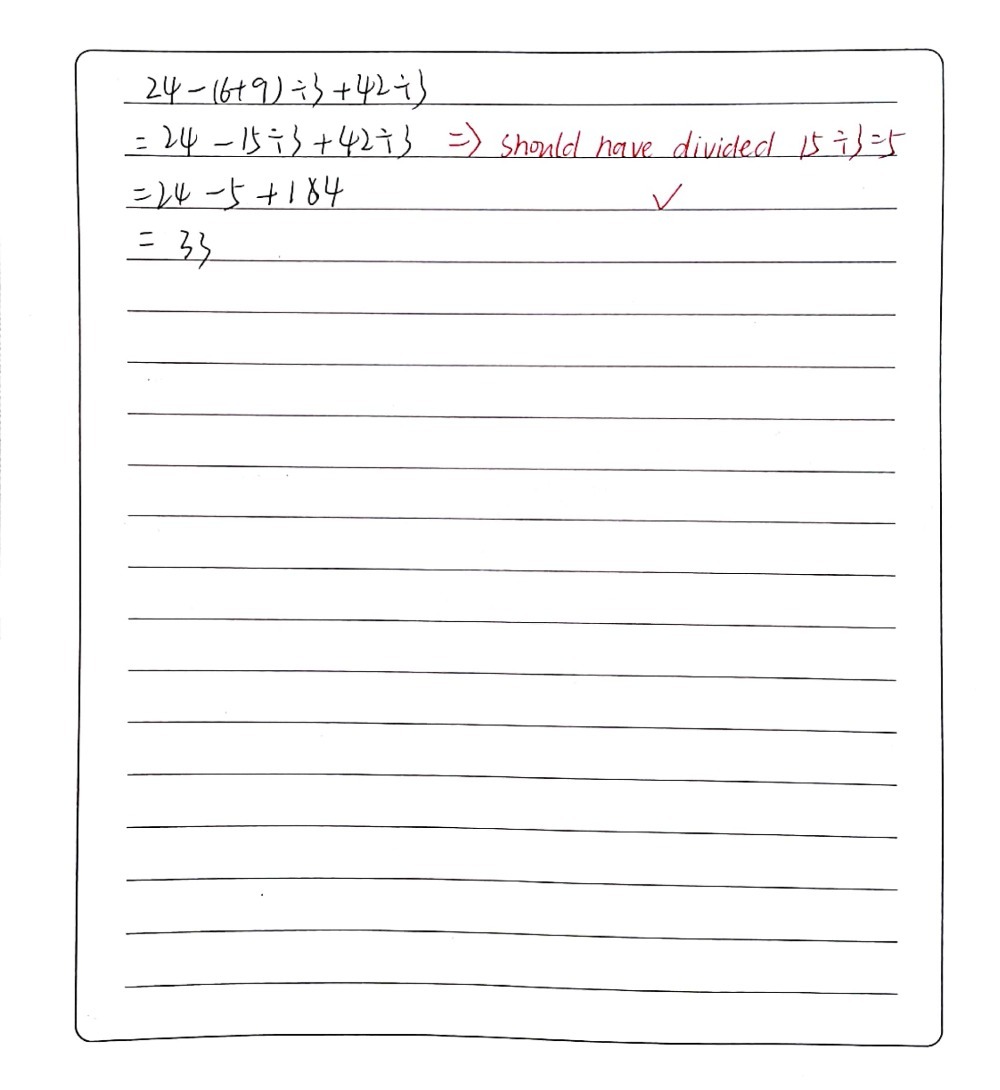 24-(6+9)÷3+42÷3
=24-15÷3+42÷3 => should have divided 15÷3=5
=24-5+184 ✓
=33